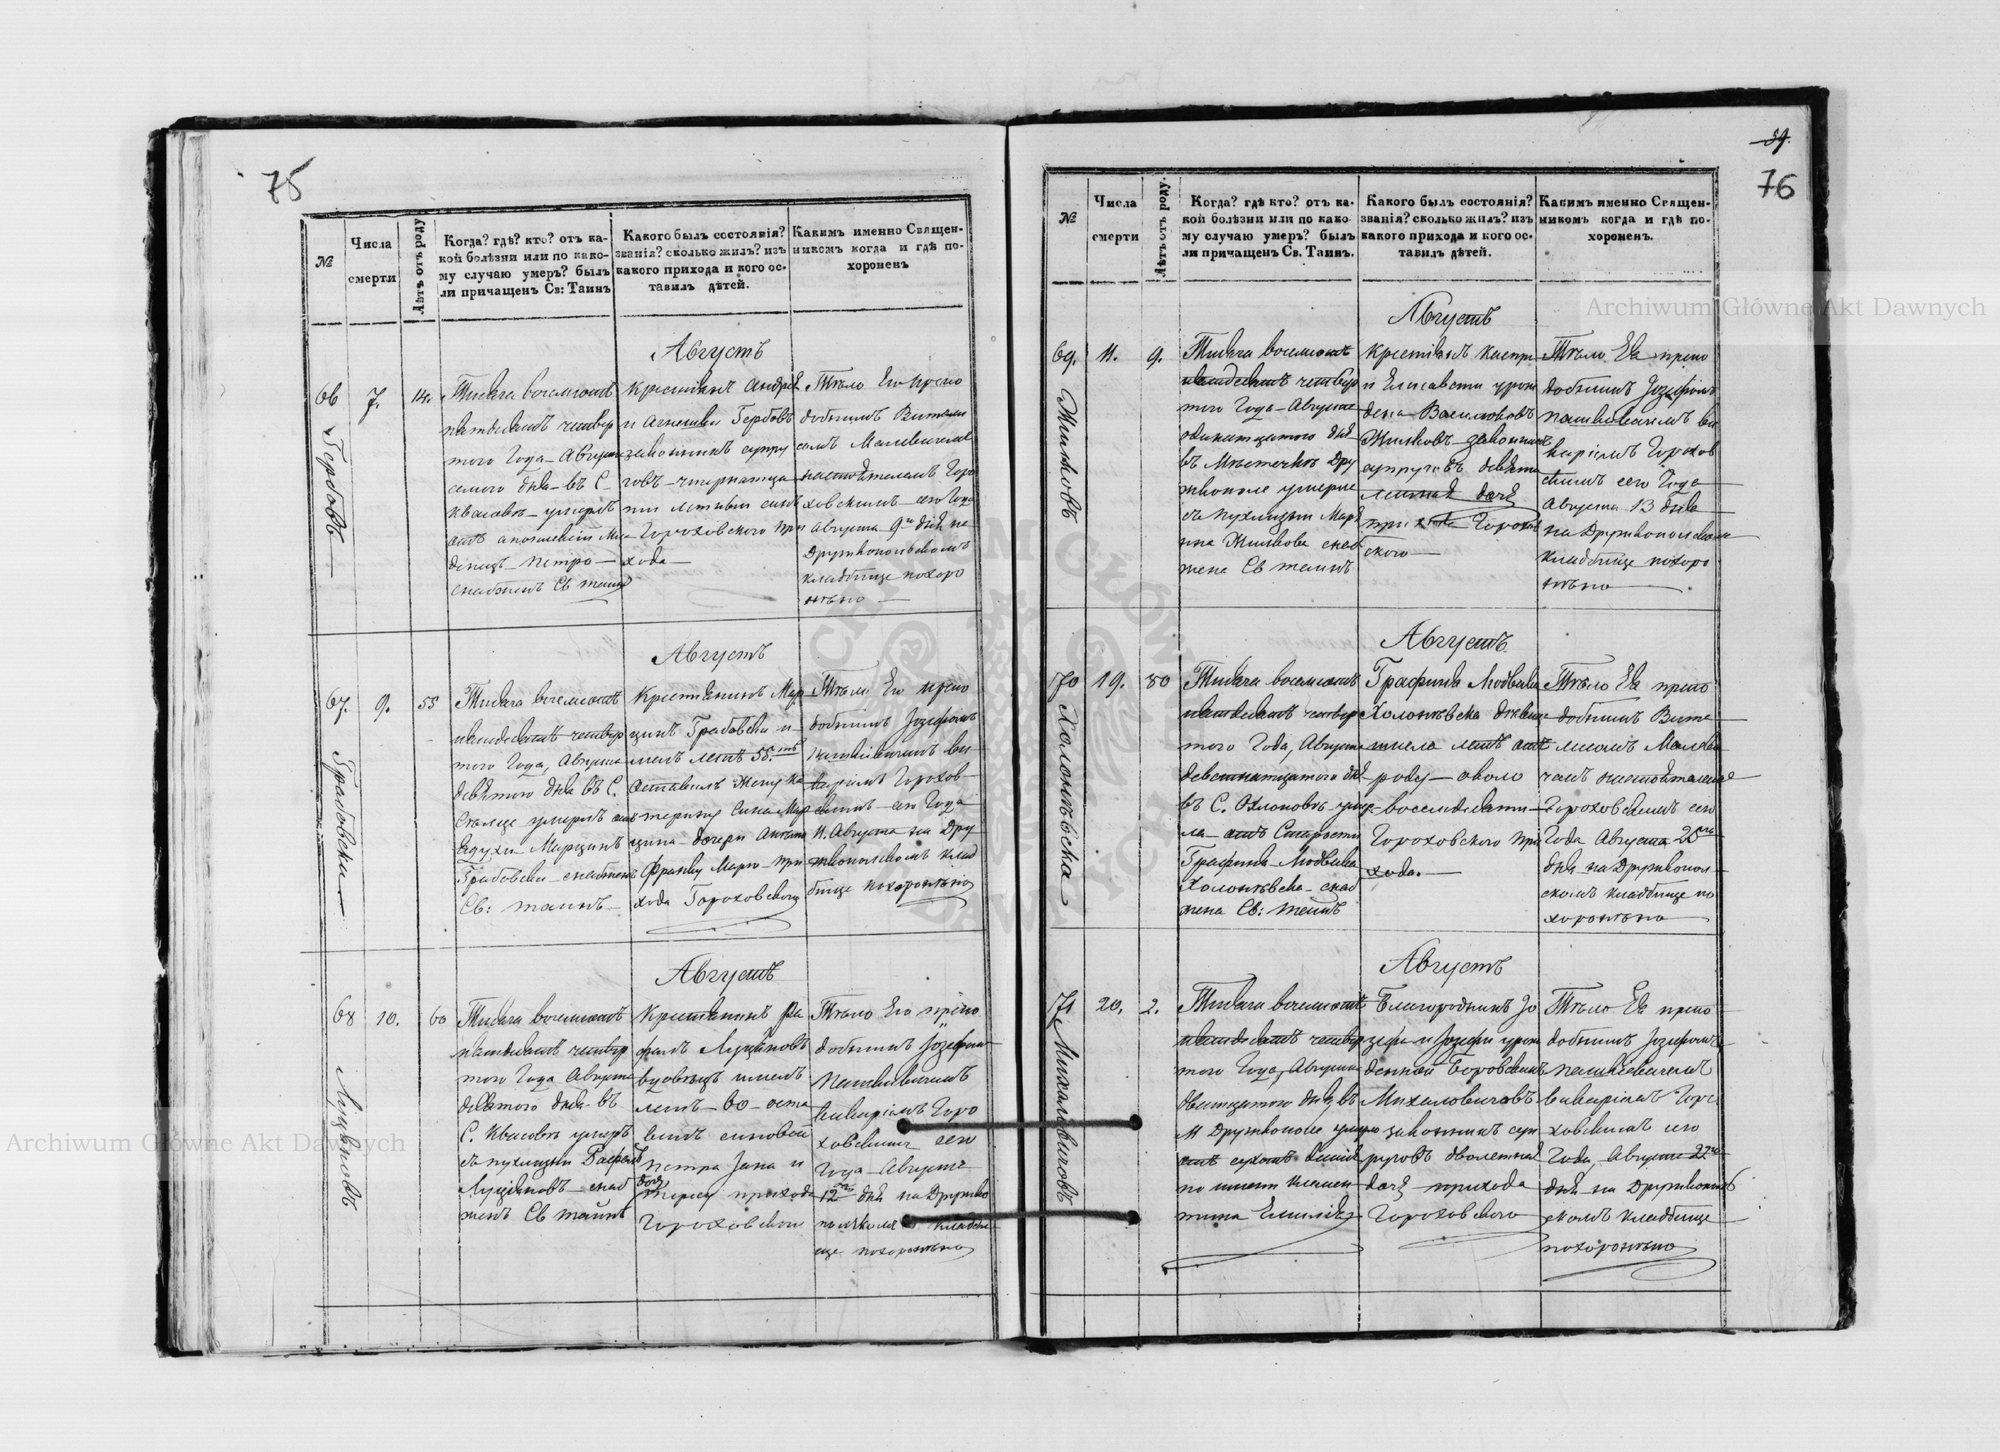 75
№
Числа
смерти
Лѣтъ отъ роду
Когда? гдѣ? кто? отъ ка-
кой болѣзни или по како-
му случаю умеръ? былъ
ли причащенъ Св: Таинъ
Какого былъ состоянія?
званія? сколько жилъ? изъ
какого прихода и кого ос-
тавилъ дѣтей.
Какимъ именно Священ-
никомъ когда и гдѣ по-
хороненъ
Августъ
66
Гербовъ
7.
14.
Тысяча восемьсотъ
пятдесятъ четвер
того Года Августа
семого дня въ С.
Квасовъ умеръ
отъ апоплексіи
Петро
снабженъ Св таинъ
Крестьянъ Андрея
и Агнешки Гербовъ
законныхъ супру
говъ четырнадца
ти летный сынъ
Гороховского При
хода
Тѣло Его препо
добнымъ Витали
сомъ Малевичемъ
настоятелемъ Горо
ховскимъ сего Года
Августа 9го дня на
Дружкопольскомъ
кладбище похоро
нѣно
Августъ
67.
Грабовски
9.
55
Тысяча восемьсотъ
пятдесятъ четвер
того Года, Августа
девятого дня въ С.
умеръ отъ
Марцинъ
Грабовски снабженъ
Св: таинъ
Крестьянинъ Мар
цинъ Грабовски и
мелъ летъ 55.
Оставилъ Жену Ка
терину Сына Мар
цина дочери
Франку Марю при
хода Гороховского
Тѣло Его препо
добнымъ Іозефомъ
вы
каріемъ Горохов
скимъ сего Года
11. Августа на Дру
жкопольскомъ клад
бище похоронѣно
Августъ
68
Луцяновъ
10.
60
Тысяча восемьсотъ
пятдесятъ четвер
того Года Августа
девятого дня въ
С. Квасовъ умеръ
съ пухлизны Рафалъ
Луцяновъ снаб
женъ Св таинъ
Крестьянинъ Ра
фалъ Луцяновъ
вдовецъ имелъ
летъ 60 оста
вилъ сыновей
Петра Јана и
дочь
прихода
Гороховского
Тѣло Его препо
добнымъ Іозефомъ
викаріемъ Горо
ховскимъ сего
Года Августа
12 дня на Дружко
польскомъ кладби
ще похоронѣно
39.
76
№
Числа
смерти
Лѣтъ отъ роду.
Когда? гдѣ кто? отъ ка-
кой болѣзни или по како-
му случаю умеръ? былъ
ли причащенъ Св. Таинъ.
Какого былъ состоянія?
званія? сколько жилъ? изъ
какого прихода и кого ос-
тавилъ дѣтей.
Какимъ именно Священ-
никомъ когда и гдѣ по-
хороненъ.
Августъ
69.
Жилковъ
11.
9.
Тысяча восемьсотъ
пятдесятъ четвер
того Года Августа
одинатцатого дня
въ Мѣстечкѣ Дру
жкополе умерла
съ пухлизны Мар
Жилкова снаб
жена Св таинъ
Крестьянъ Каспра
и Елисаветы урож
дена
Жилковъ законныхъ
супруговъ девята
летная дочь
прихода Горохов
ского
Тѣло Ея препо
добнымъ Іозефомъ
ви
каріемъ Горохов
скимъ сего Года
Августа 13 дня
на Дружкопольскомъ
кладбище похоро
нѣно
Августъ
70
Холонѣвска
19.
80
Тысяча восемьсотъ
пятдесятъ четвер
того Года, Августа
девятнатцатого дня
въ С. Охлоповъ умер
ла отъ Старости
Графина Людвика
Холонѣвска снаб
жена Св: таинъ
Графина Людвика
Холонѣвска
имела летъ отъ
роду около
восемдесяти
Гороховского При
хода.
Тѣло Ея препо
добнымъ Вита
лисомъ Малеви
чемъ настоятелемъ
Гороховскимъ сего
Года Августа
дня на Дружкополь
скомъ кладбище по
хоронѣно
Августъ
71
Михаловичовъ
20.
2.
Тысяча восемьсотъ
пятдесятъ четвер
того Года, Августа
двадцатого дня въ
М Дружкополе умерла
отъ
по имени Клемен
тина Емилія
Благородныхъ Іо
зефа и Іозефы урож
денной Боровскихъ
Михаловичовъ
законныхъ суп
руговъ дволетная
дочь прихода
Гороховского
Тѣло Ея препо
добнымъ Іозефомъ
викаріемъ Горо
ховскимъ сего
Года, Августа
дня на Дружкополь
скомъ кладбище
похоронѣно
Archiwum Główne Akt Dawnych
Archiwum Główne Akt Dawnych